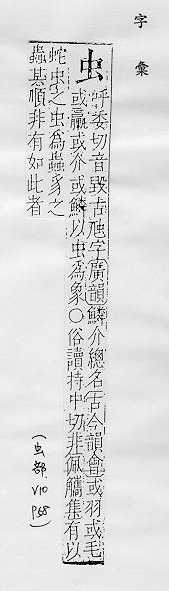 字彙
虫
呼委切音毀古虺字廣韻鱗介總名古今韻會或羽或毛
或蠃或介或鱗以虫為象〇俗讀持中切非佩觿集有以
蛇虫之虫為蟲豸之
蟲其順非有如此者
(虫部. V10 P68)